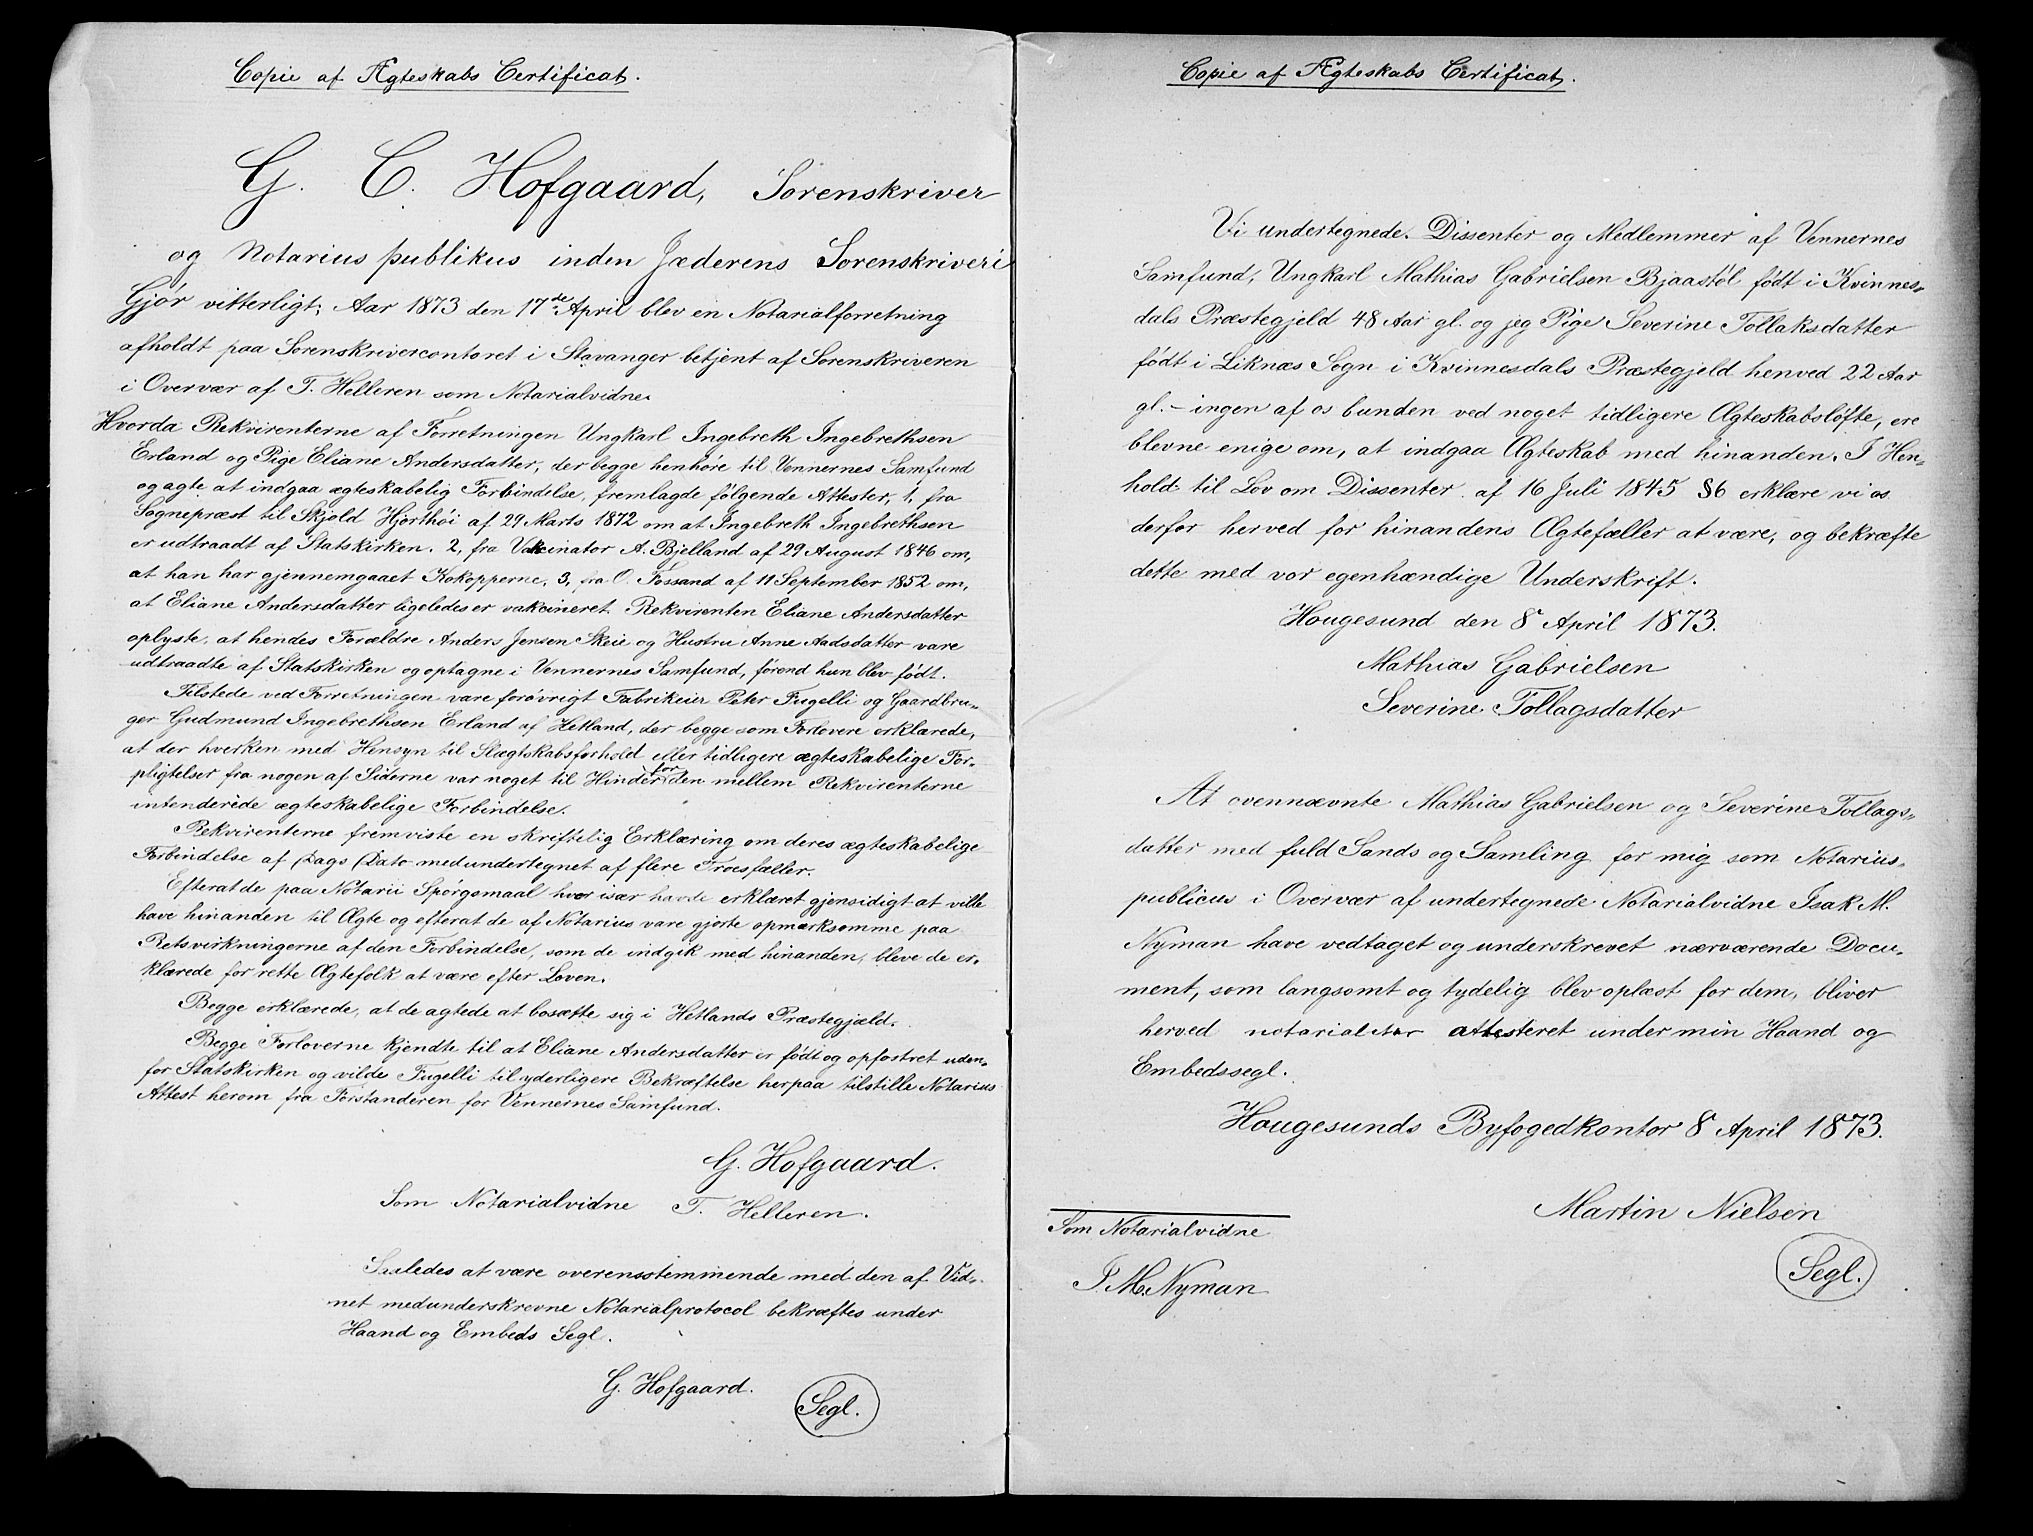 Copie af Ægteskabs Certificat.
G. C. Hofgaard, Sorenskriver
og Notarius publikus inden Jæderens Sorenskriveri
Gjør vitterligt; Aar 1873 den 17de April blev en Notarialforretning
afholdt paa Sorenskrivercontoret i Stavanger betjent af Sorenskriveren
i Overvær af T. Helleren som Notarialvidne.
Hvorda Rekvirenterne af Forretningen Ungkarl Ingebreth Ingebrethsen
Erland og Pige Eliane Andersdatter, der begge henhøre til Vennernes Samfund
og agte at indgaa ægteskabelig Forbindelse, fremlagde følgende Attester, 1, fra
Sognepræst til Skjold Hjorthøi af 29 Marts 1872 om at Ingebreth Ingebrethsen
er udtraadt af Statskirken. 2, fra Vakcinator A. Bjelland af 29 August 1846 om,
at han har gjennemgaaet Kokopperne, 3, fra O. Fossand af 11 September 1852 om,
at Eliane Andersdatter ligeledes er vakcineret. Rekvirenten Eliane Andersdatter
oplyste, at hendes Forældre Anders Jensen Skeie og Hustru Anne Aadsdatter vare
udtraadte af Statskirken og optagne i Vennernes Samfund, førend hun blev født.
Tilstede ved Forretningen vare forøvrigt Fabrikeier Peter Fugelli og Gaardbru-
ger Gudmund Ingebrethsen Erland af Hetland, der begge som Forlovere erklærede,
at der hverken med Hensyn til Slægtskabsforhold eller tidligere ægteskabelige For-
pligtelser fra nogen af Siderne var noget til Hinder for den mellem Rekvirenterne
intenderede ægteskabelige Forbindelse.
Rekvirenterne fremviste en skriftelig Erklæring om deres ægteskabelige
Forbindelse af Dags Dato medundertegnet af flere Troesfæller.
Efterat de paa Notarii Spørgsmaal hver især havde erklæret gjensidigt at ville
have hinanden til Ægte og efterat de af Notarius vare gjorte opmærksomme paa
Retsvirkningerne af den Forbindelse, som de indgik med hinanden, bleve de er-
klærede for rette Ægtefolk at være efter Loven.
Begge erklærede, at de agtede at bosætte sig i Hetlands Præstegjæld.
Begge Forloverne kjendte til at Eliane Andersdatter er født og opfostret uden-
for Statskirken og vilde Fugelli til yderligere Bekræftelse herpaa tilstille Notarius
Attest herom fra Forstanderen for Vennernes Samfund.
G. Hofgaard.
Som Notarialvidne T. Helleren.
Saaledes at være overensstemmende med den af Vid-
net medunderskrevne Notarialprotocol bekræftes under
Haand og Embeds Segl.
G. Hofgaard.
Segl.
Copie af Ægteskabs Certificat.
Vi undertegnede. Dissenter og Medlemmer af Vennernes
Samfund, Ungkarl Mathias Gabrielsen Bjaastøl født i Kvinnes-
dals Præstegjeld 48 Aar gl. og jeg Pige Severine Tollaksdatter
født i Liknæs Sogn i Kvinnesdals Præstegjeld henved 22 Aar
gl. – ingen af os bunden ved noget tidligere Ægteskabsløfte, ere
blevne enige om, at indgaa Ægteskab med hinanden. I Hen-
hold til Lov om Dissenter af 16 Juli 1845 §6 erklære vi os
derfor herved for hinandens Ægtefæller at være, og bekræfte
dette med vor egenhændige Underskrift.
Hougesund den 8 April 1873.
Mathias Gabrielsen
Severine Tollagsdatter
At ovennævnte Mathias Gabrielsen og Severine Tollags-
datter med fuld Sands og Samling for mig som Notarius
publicus i Overvær af undertegnede Notarialvidne Isak M.
Nyman have vedtaget og underskrevet nærværende Docu-
ment, som langsomt og tydelig blev oplæst for dem, bliver
herved notarialiter attesteret under min Haand og
Embedssegl.
Hougesunds Byfogedkontor 8 April 1873.
Martin Nielsen
Som Notarialvidne
I. M. Nyman
Segl.